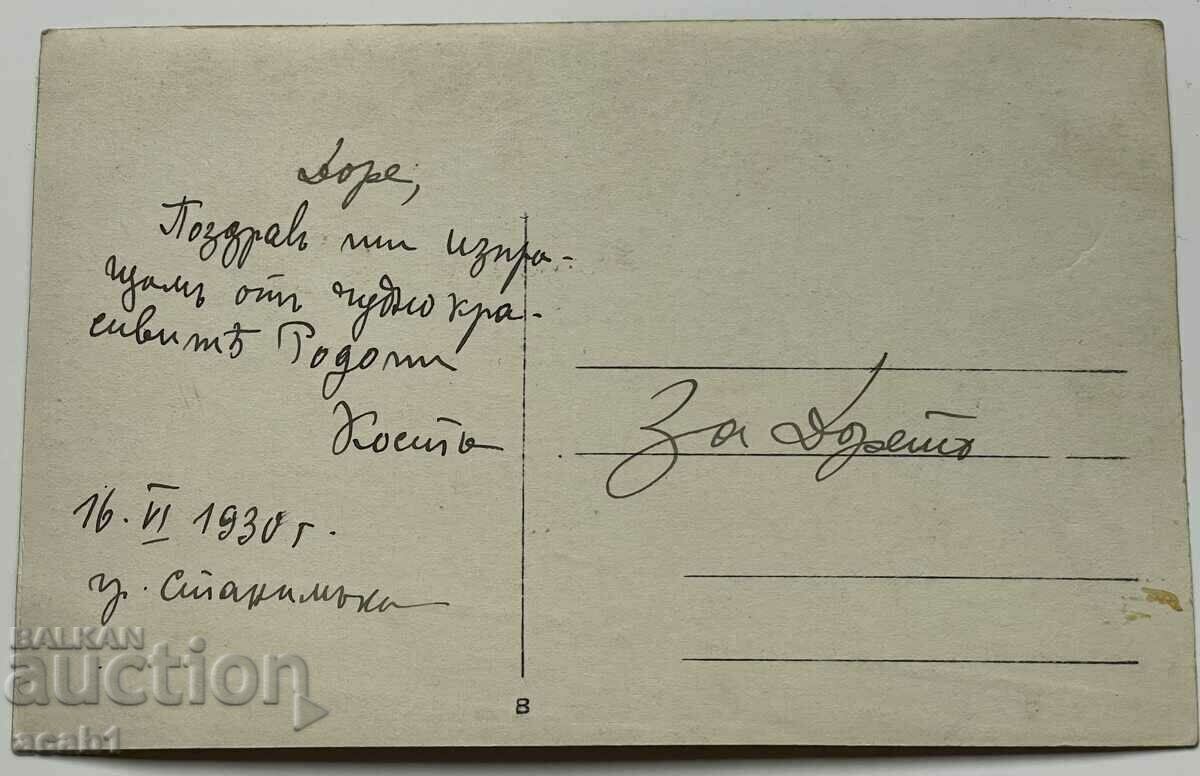 Доре,
Поздравъ ти изпра-
щамъ отъ чудно кра-
сивитѣ Родопи
Коста
16. VI 1930 г.
гр. Станимъка
За Дорето
8
BALKAN
auction
acab1